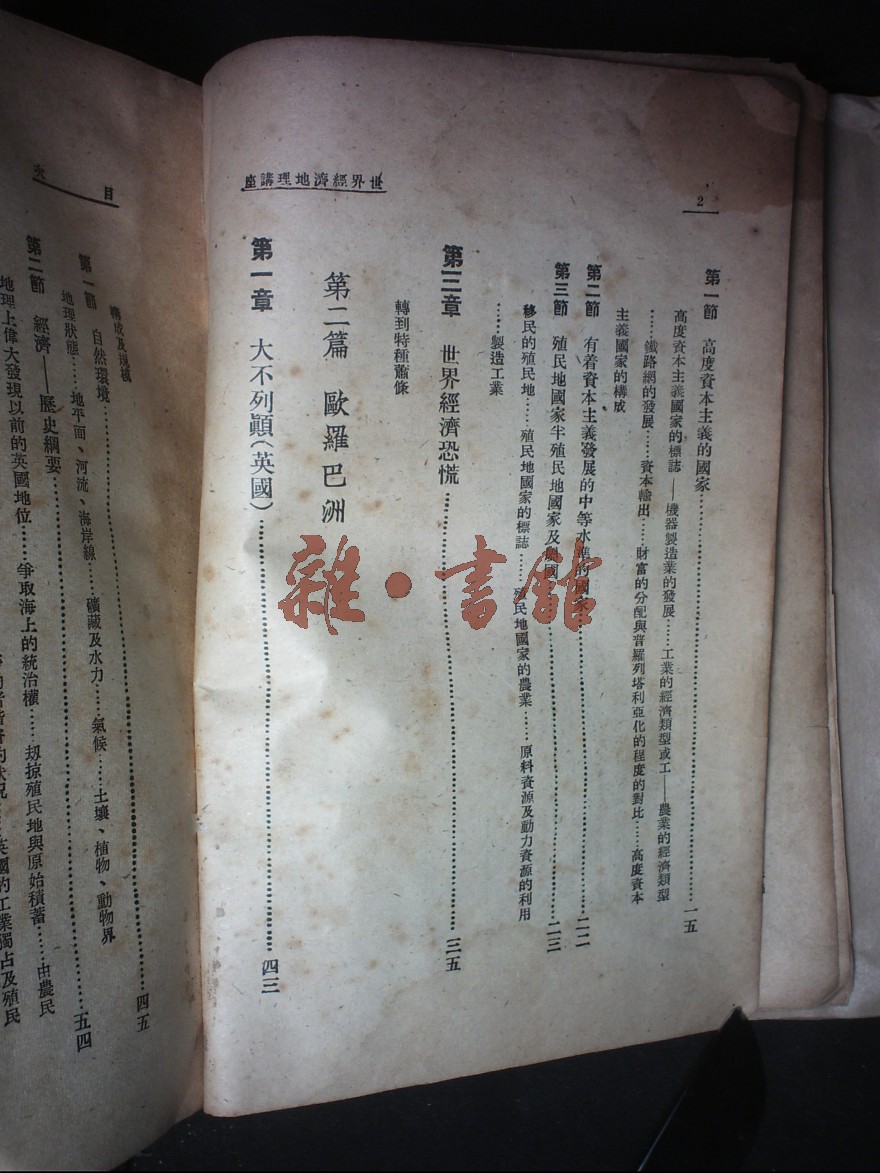 世界經濟地理講座
2
第一節 高度資本主義的國家……一五
高度資本主義國家的標誌——機器製造業的發展……工業的經濟類型或工——農業的經濟類型
……鐵路網的發展……資本輸出……財富的分配與普羅列塔利亞化的程度的對比……高度資本
主義國家的構成
第二節 有着資本主義發展的中等水準的國家……二二
第三節 殖民地國家半殖民地國家及屬國……二三
移民的殖民地……殖民地國家的標誌……殖民地國家的農業……原料資源及動力資源的利用
……製造工業
第三章 世界經濟恐慌……三五
轉到特種蕭條
第二篇 歐羅巴洲
第一章 大不列顛（英國）……四三
雜·書館
目次
構成及規模
第一節 自然環境……四五
地理狀態……地平面、河流、海岸線……礦藏及水力……氣候……土壤、植物、動物界
第二節 經濟——歷史綱要……五四
地理上偉大發現以前的英國地位……爭取海上的統治權……刼掠殖民地與原始積蓄……由農民
的狀況……英國的工業獨占及殖民